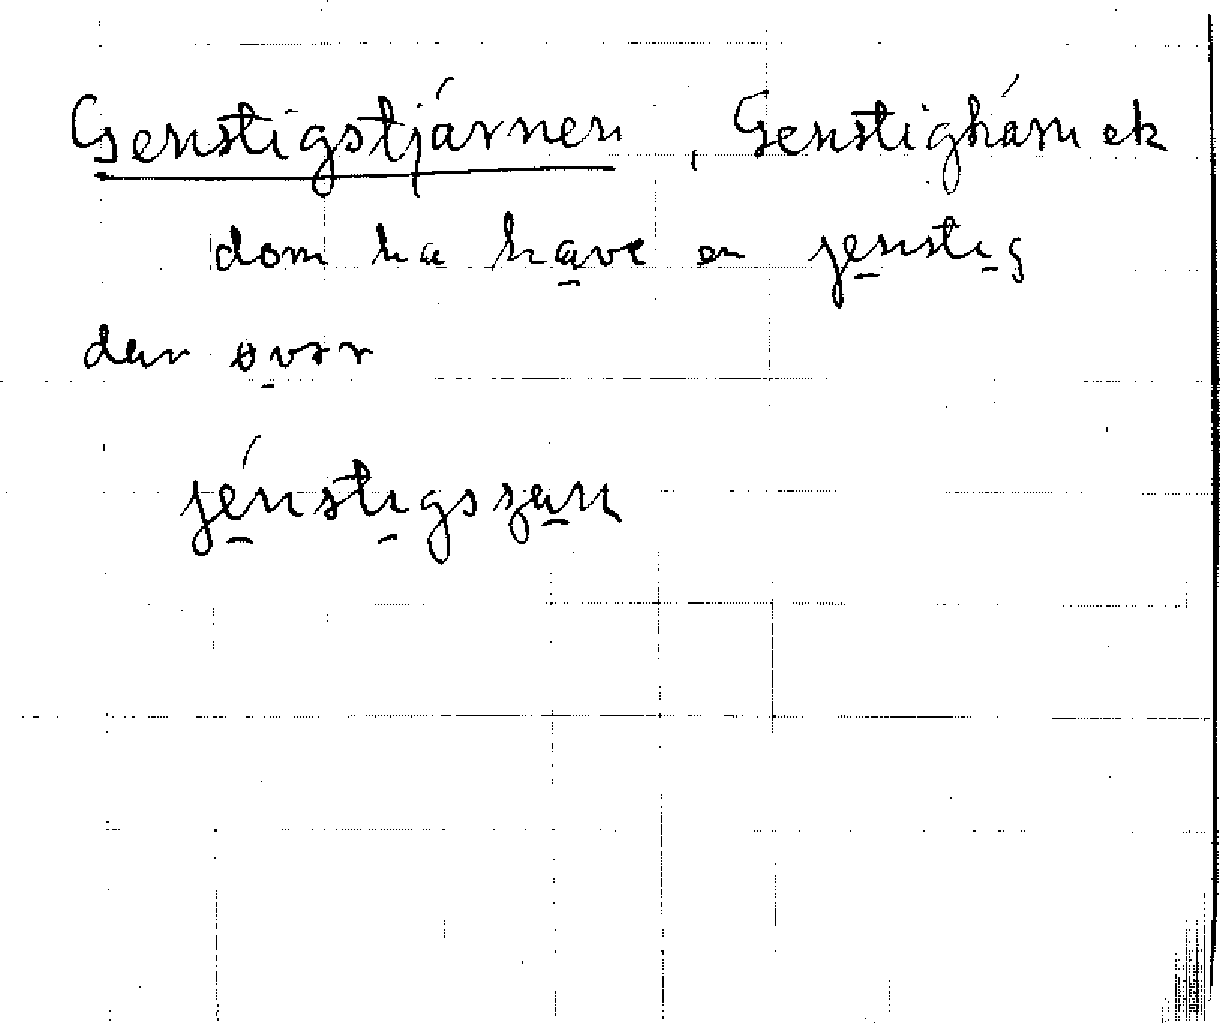 Genstigstjárnen, Genstighárn ek
dom ha have en jenstig
dar over
jénstigssan